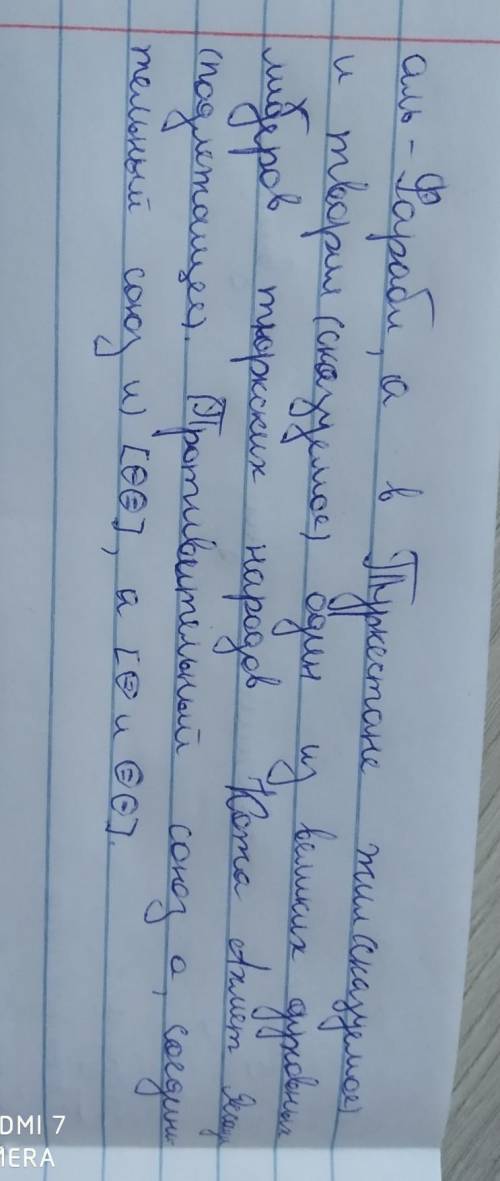 аль-Фараби, а в Туркестане жил (сказуемое)
и творил (сказуемое) один из великих духовных
лидеров тюркских народов Кожа Ахмет
(подлежащее). Противительный союз а, соедини-
тельный союз и) [⊖⊖], а [⊖ и ⊖⊖].
DMI 7
MERA